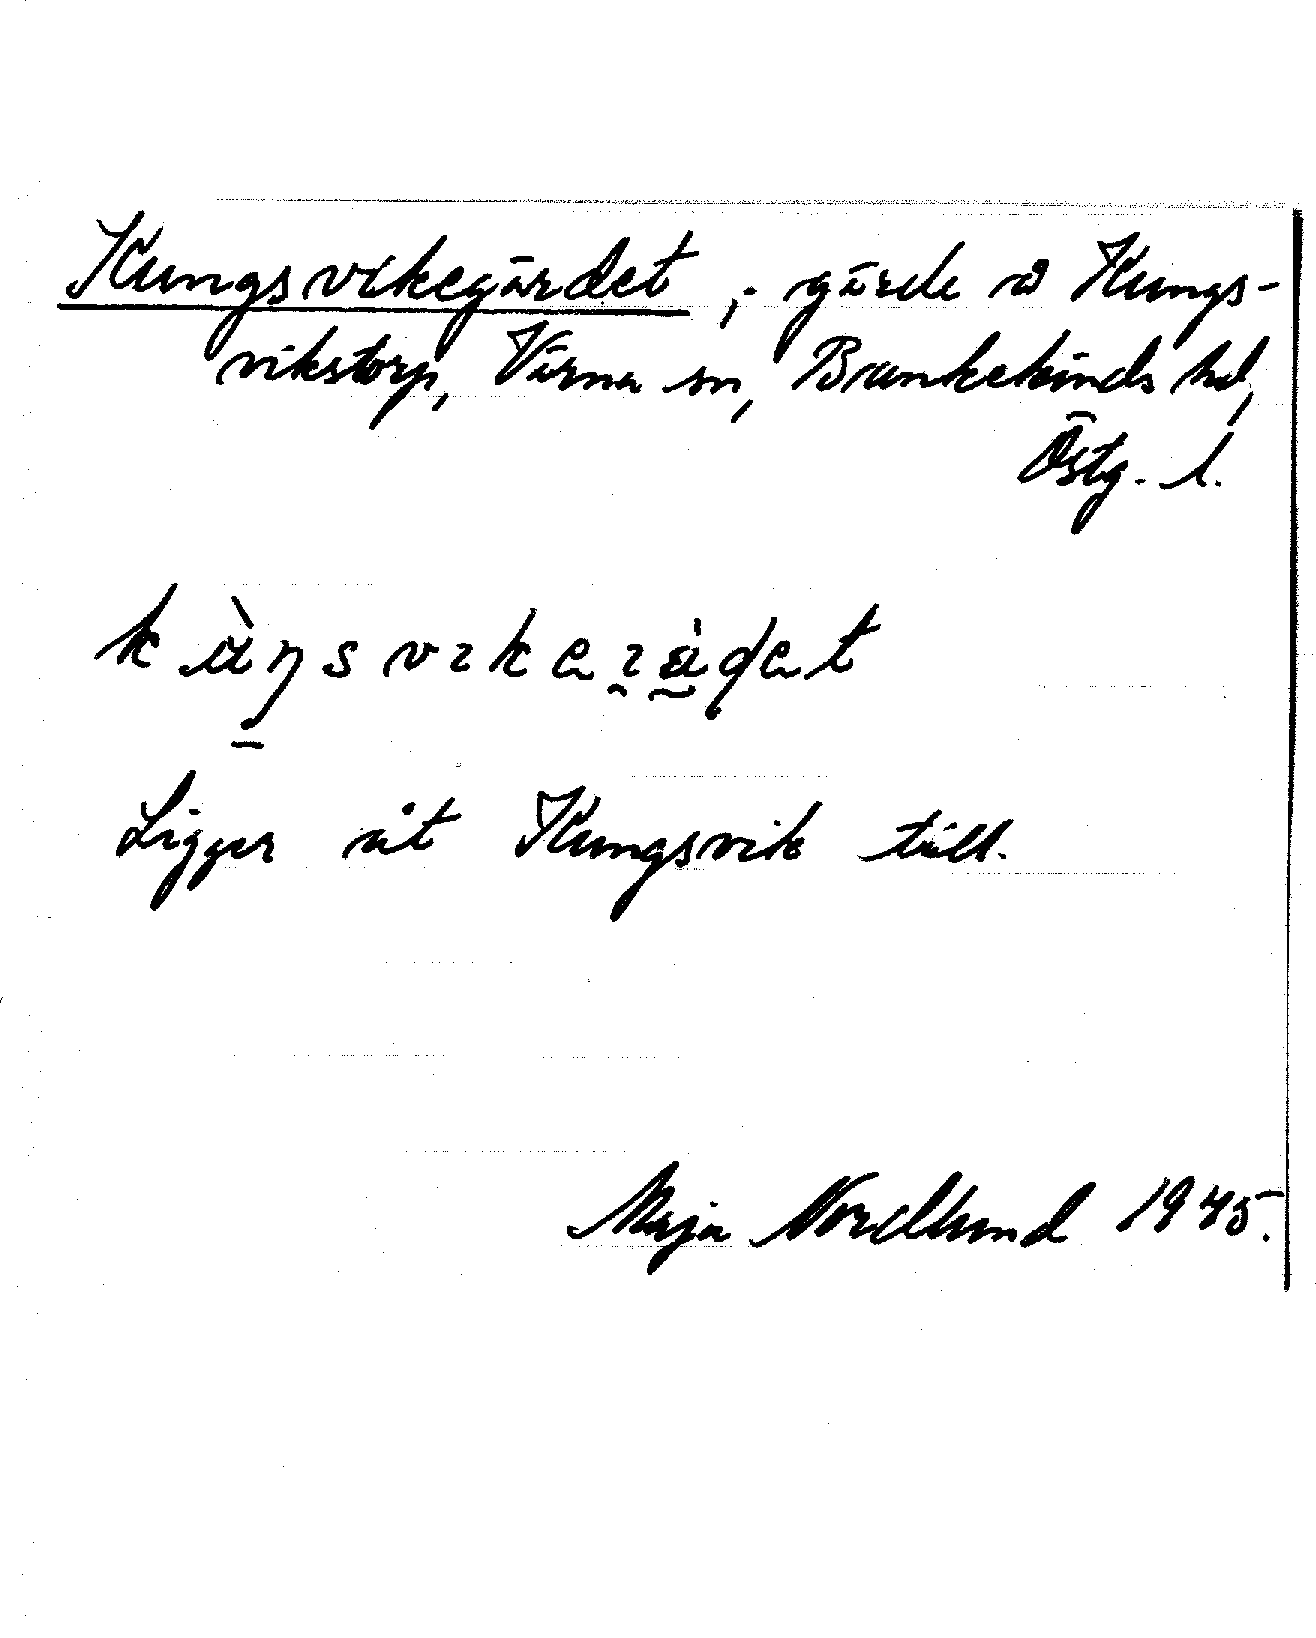 Kungsvikegärdet, gärde å Kungs-
vikstorp, Värna sn, Bankekinds hd,
Östg. l.
Ligger åt Kungsvik till.
Maja Nordlund 1945.